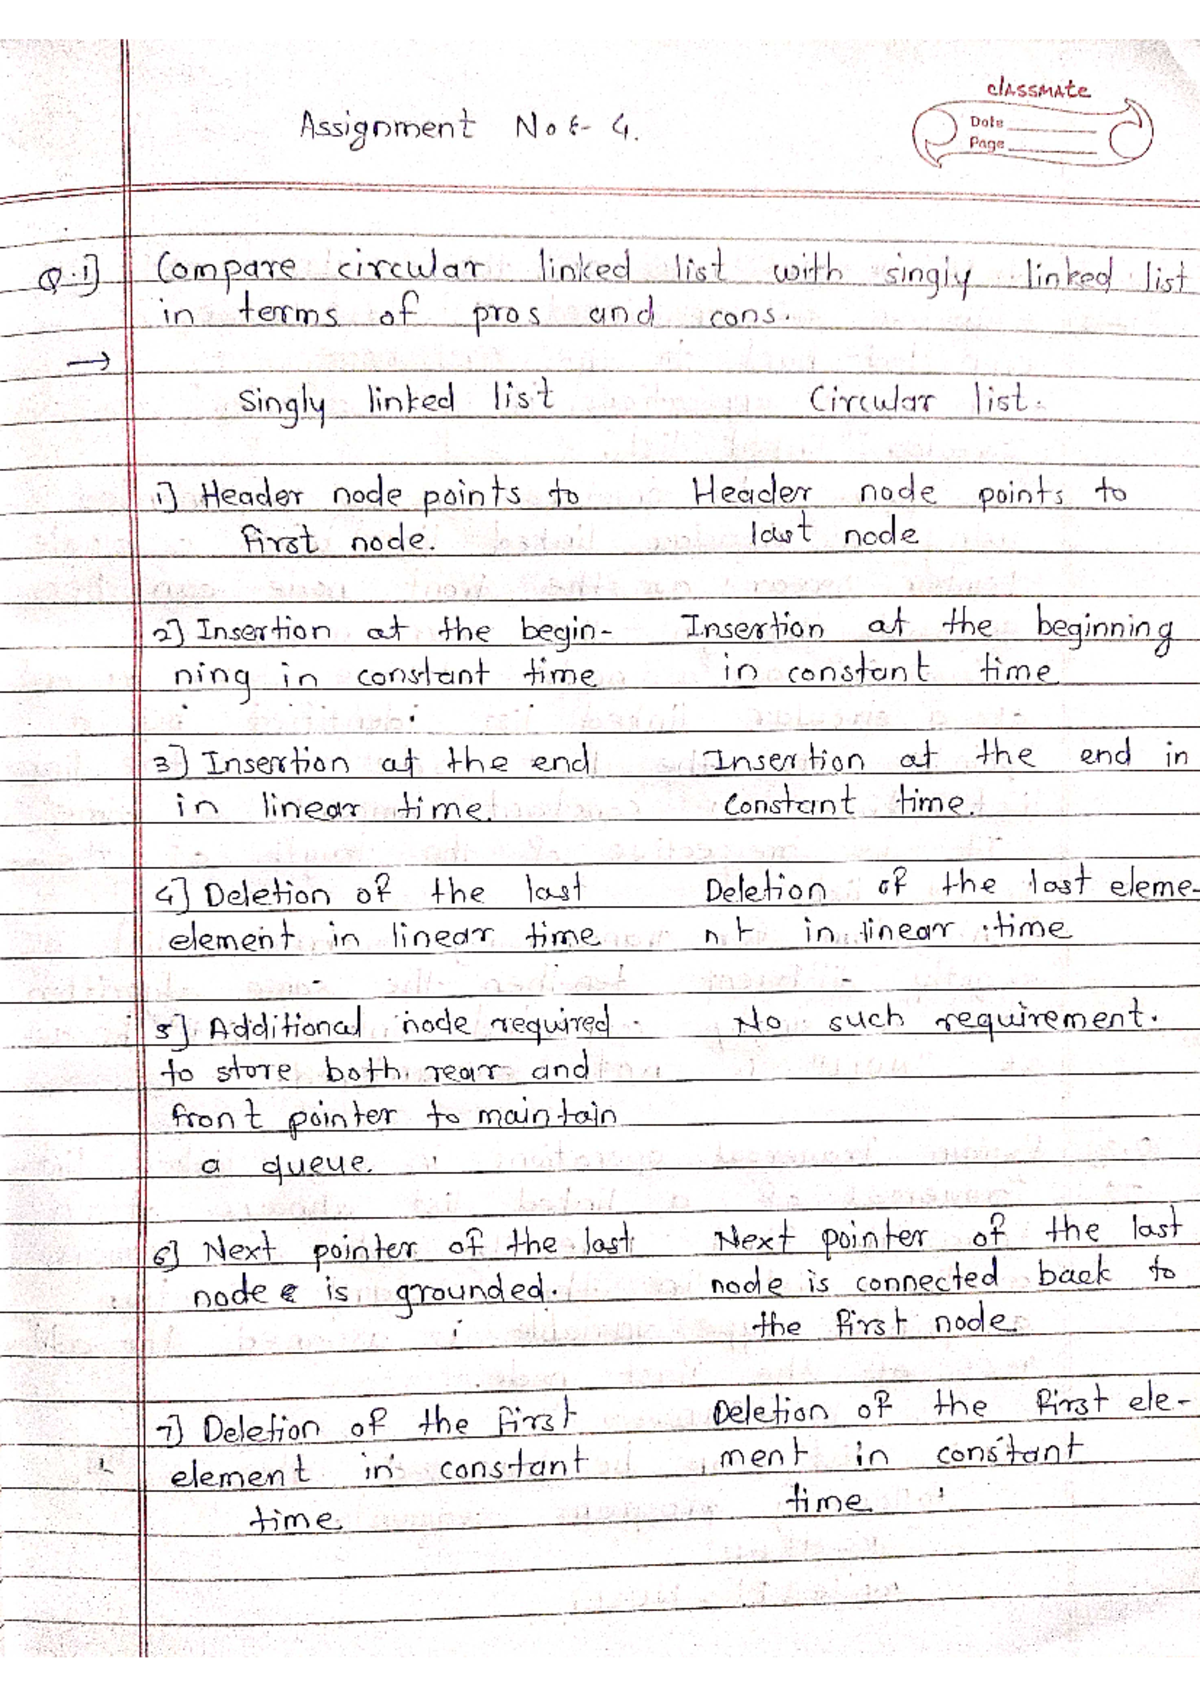 classmate
Date
Page
Assignment No:- 4.
Q.1] Compare circular linked list with singly linked list
in terms of pros and cons.
→
Singly linked list Circular list.
1] Header node points to Header node points to
first node. last node
2] Insertion at the begin- Insertion at the beginning
ning in constant time in constant time
3] Insertion at the end Insertion at the end in
in linear time. constant time.
4] Deletion of the last Deletion of the last eleme-
element in linear time nt in linear time
5] Additional node required No such requirement.
to store both rear and
front pointer to maintain
a queue.
6] Next pointer of the last Next pointer of the last
node is grounded. node is connected back to
the first node.
7] Deletion of the first Deletion of the first ele-
element in constant ment in constant
time. time